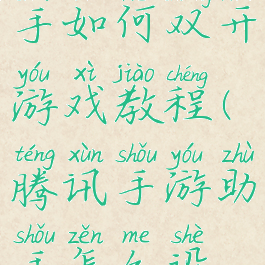 手如何双开
yóu xì jiào chéng
游戏教程(
téng xùn shǒu yóu zhù
腾讯手游助
shǒu zěn me shè
手怎么设